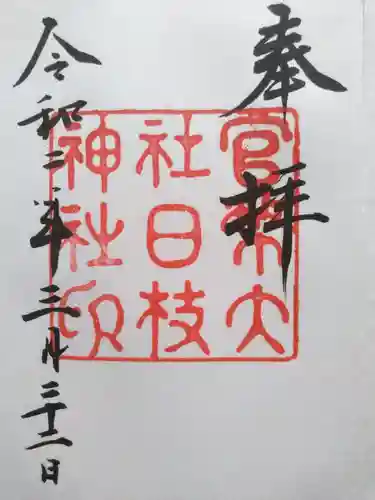 奉拝
官幣大
社日枝
神社印
令和二年三月二十二日